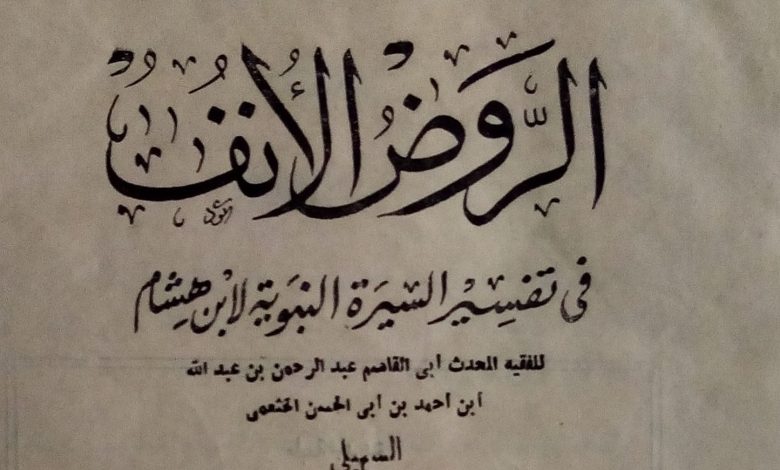 الرَّوْضُ الأُنُفُ
في تفسير السيرة النبوية لابن هشام
للفقيه المحدث أبى القاسم عبد الرحمن بن عبد الله
ابن احمد بن ابى الحسن الخثعمى
السهيلى